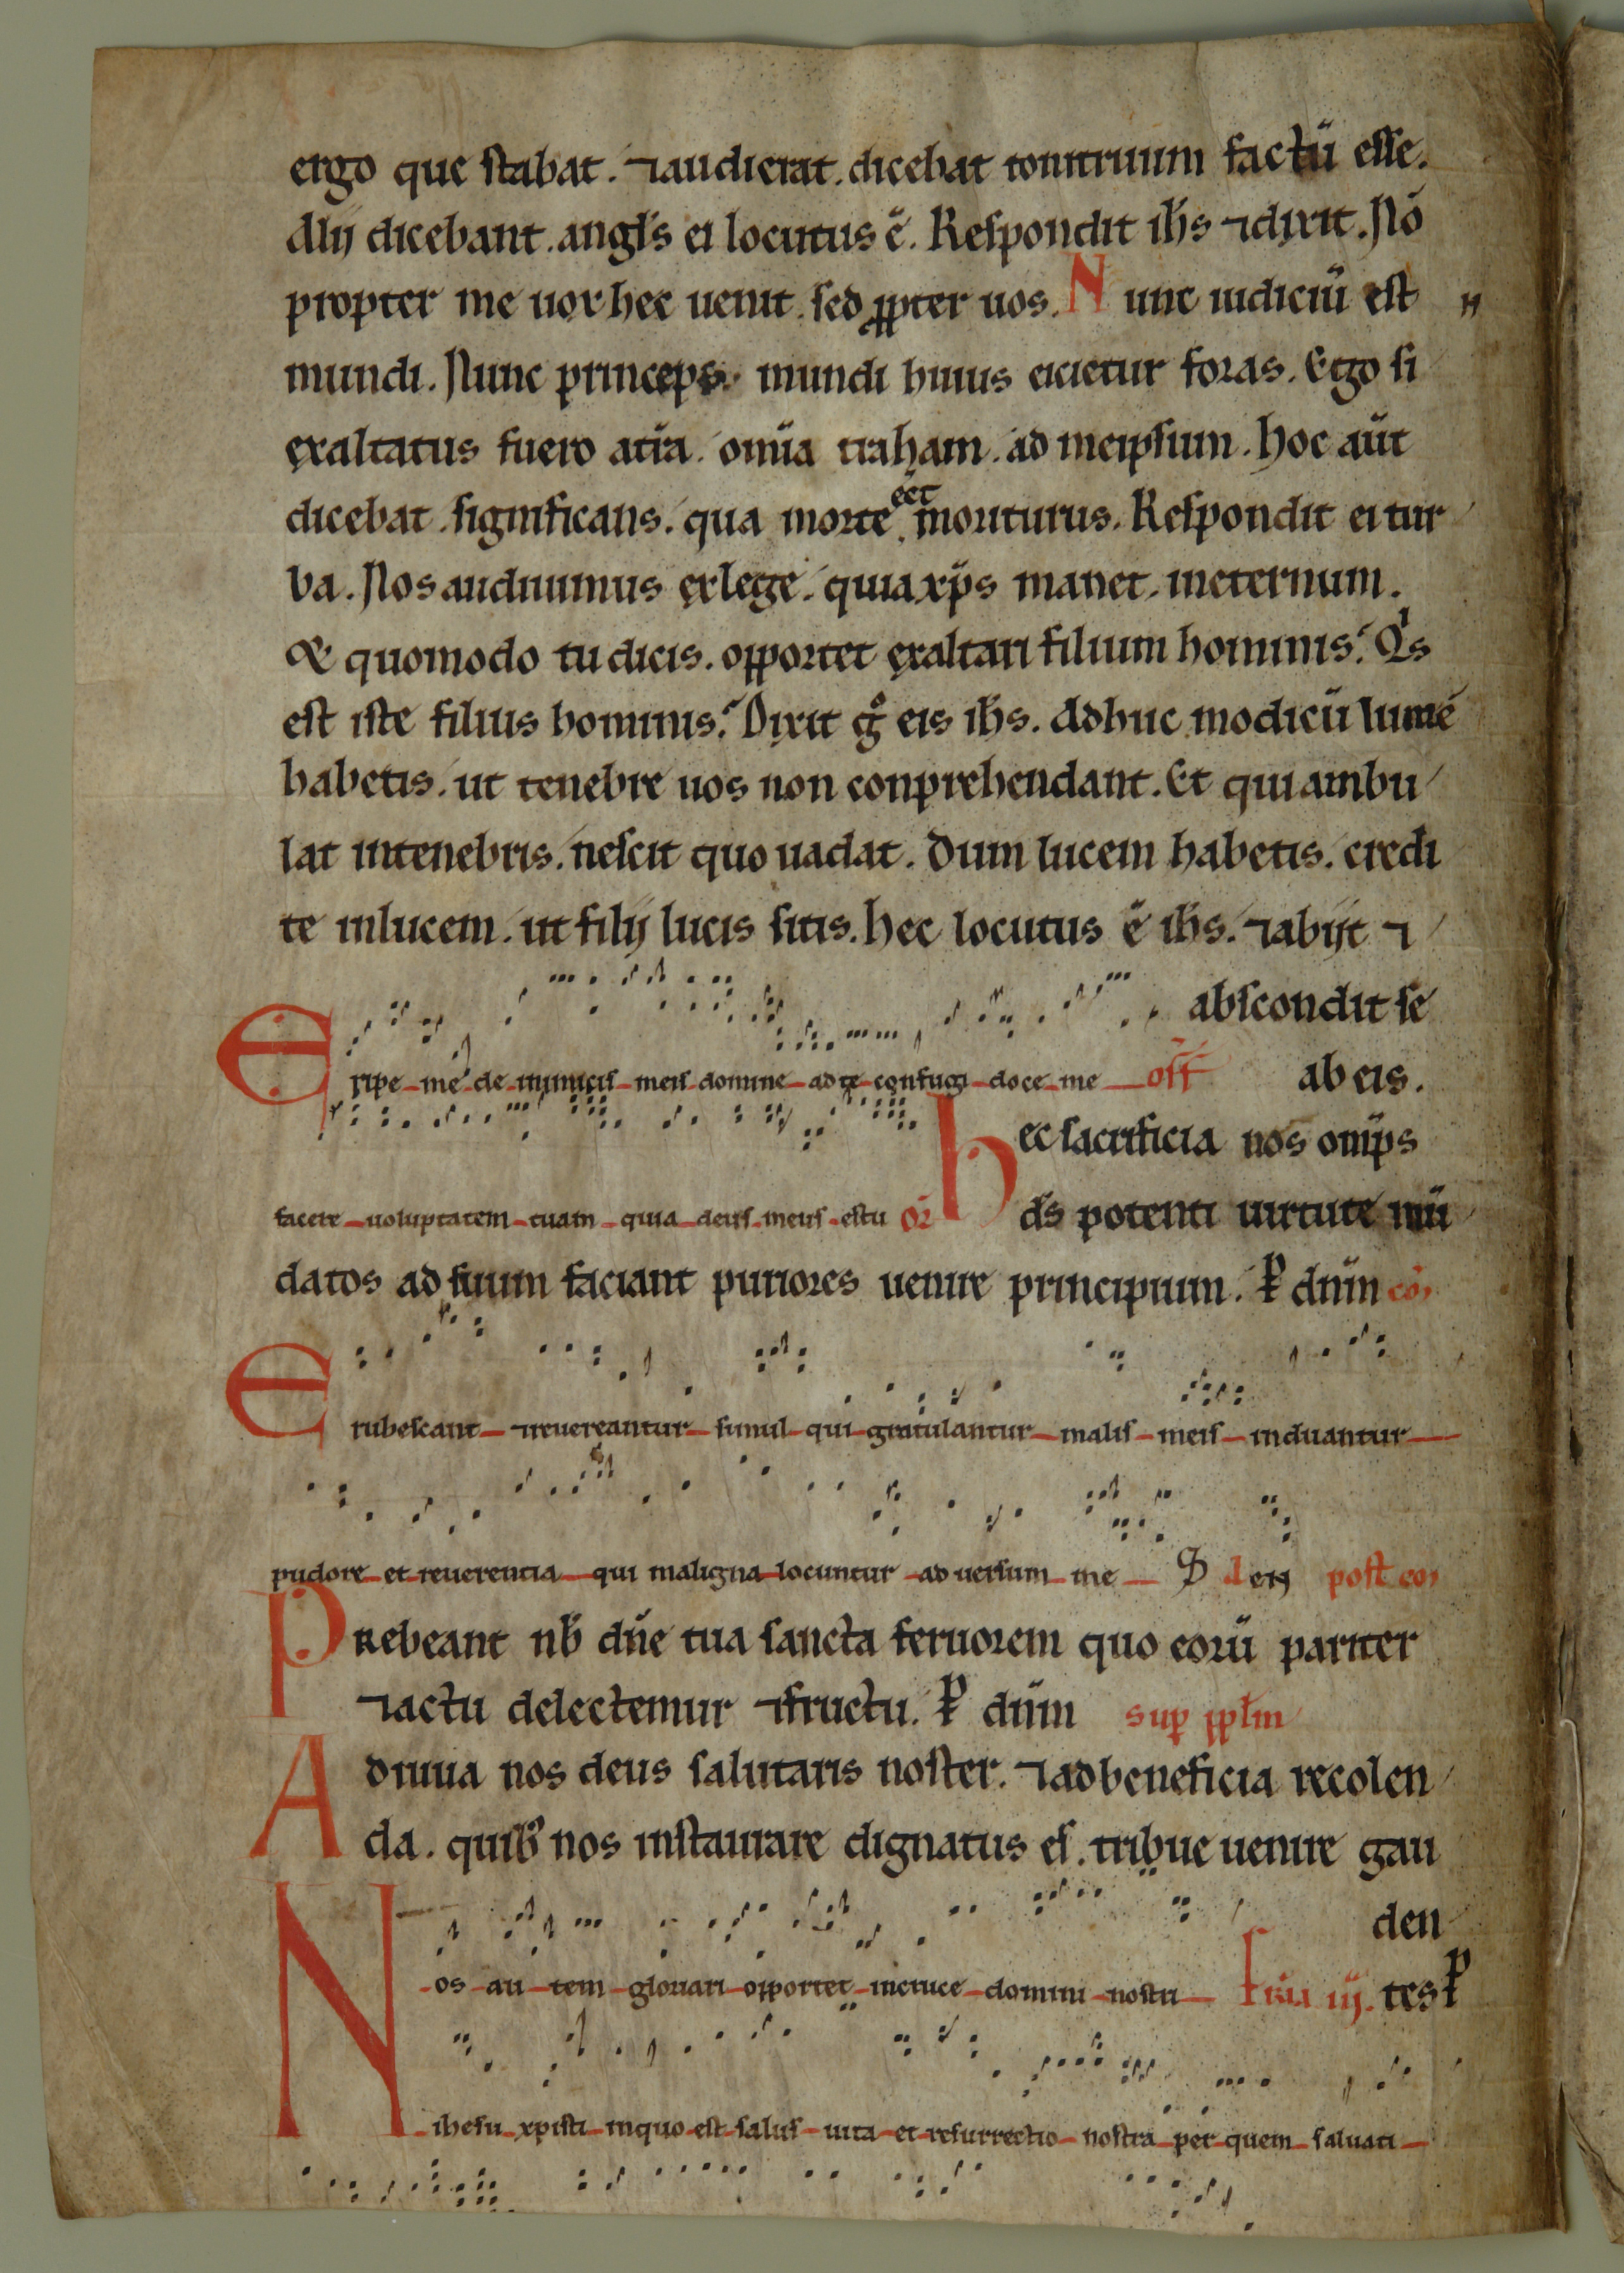 ergo que stabat. ⁊audierat. dicebat tonitruum factū esse.
Alij dicebant. angl's ei locutus ē. Respondit ih's ⁊dixit. Nō
propter me uox hec uenit. sed ꝓpter uos. Nunc iudiciū est
mundi. Nunc princeps. mundi huius eicietur foras. Ego si
exaltatus fuero at̄ra. om̄ia traham. ad meipsum. hoc aūt
dicebat. significans. qua morte eēt moriturus. Respondit ei tur
ba. Nos audiuimus exlege. quia xp̄s manet. ineternum.
& quomodo tu dicis. opportet exaltari filium hominis. Qis
est iste filius hominis. Dixit gͦ eis ih's. Adhuc modicū lumē
habetis. ut tenebre uos non conprehendant. Et qui ambu
lat intenebris. nescit quo uadat. Dum lucem habetis. credi
te inlucem. ut filij lucis sitis. hec locutus ē ih's. ⁊abijt ⁊
abscondit se
Eripe me de inimicis meis domine ad te confugi doce me off
ab eis.
hec sacrificia nos om̄ps
facere uoluptatem tuam quia deus meus estu or̄
d's potenti uirtute mū
datos ad suum faciant puriores uenire principium. P̄ dn̄m cō
Erubescant ⁊reuereantur simul qui gratulantur malis meis induantur
pudore et reuerentia qui maligna locuntur aduersum me post cō
Prebeant nb̄ dn̄e tua sancta feruorem quo eorū pariter
⁊actu delectemur ⁊fructu. P̄ dn̄m sup pplm
Adiuua nos deus salutaris noster. ⁊adbeneficia recolen
da. quib' nos instaurare dignatus es. tribue uenire gau
den
Nos autem gloriari opportet incruce domini nostri fr̄ia iij. tes P̄
ihesu xpisti inquo est salus uita et resurrectio nostra per quem saluati